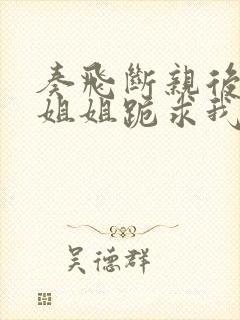 秦飛斷親後
姐姐跪求我
吴德群